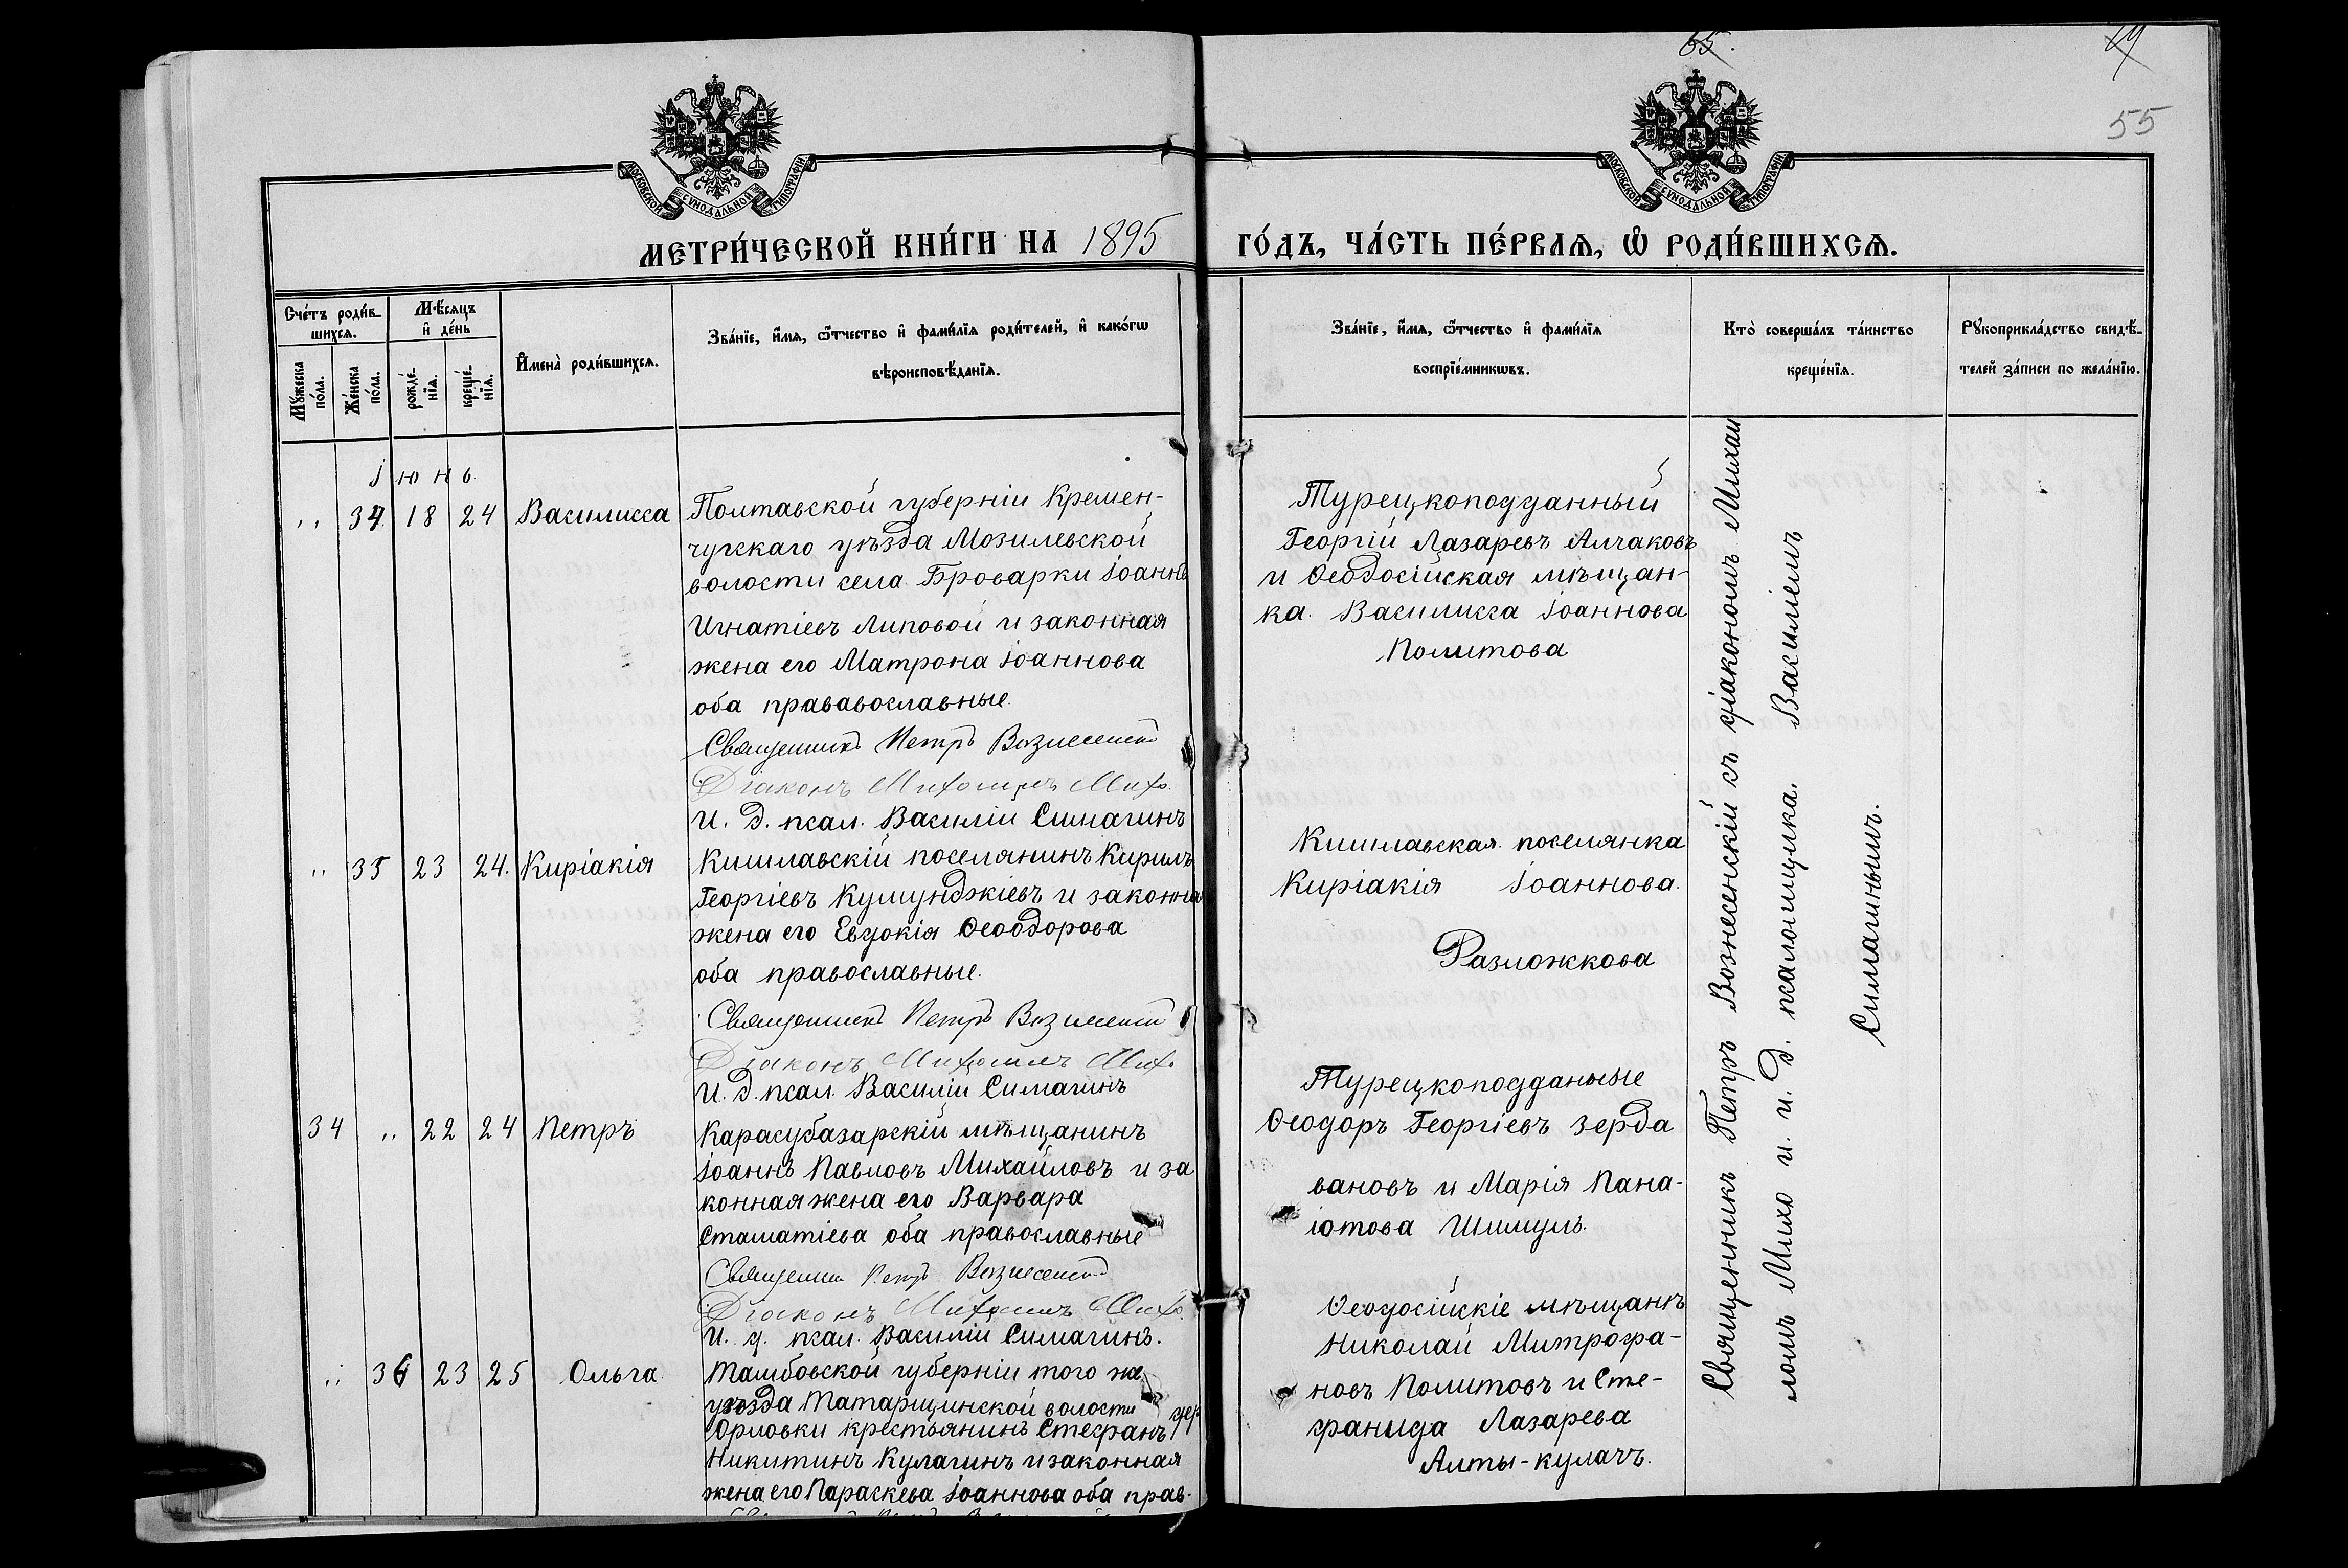 65.
55
МОСКОВСКОЙ СѴНОДАЛЬНОЙ ТИПОГРАФІИ
МОСКОВСКОЙ СѴНОДАЛЬНОЙ ТИПОГРАФІИ
МЕТРИ́ЧЕСКОЙ КНИ́ГИ НА 1895 ГО́ДЪ, ЧА́СТЬ ПЕ́РВАѦ, Ѿ РОДИ́ВШИХСѦ.
Сче́тъ роди́в-
шихсѧ.
Мꙋ́жеска по́ла.
Же́нска по́ла.
Мѣ́сѧцъ и҆ де́нь
рожде́-нїѧ.
креще́-нїѧ.
И҆мена̀ роди́вшихсѧ.
Зва́нїе, и҆́мѧ, ѻ҆́тчество и҆ фами́лїѧ роди́телей, и҆ како́гѡ
вѣроисповѣ́данїѧ.
Зва́нїе, и҆́мѧ, ѻ҆́тчество и҆ фами́лїѧ
воспрїе́мникѡвъ.
Кто̀ соверша́лъ та́инство
креще́нїѧ.
Рꙋкоприкла́дство свидѣ́-
телей за́писи по жела́нїю.
Іюнь
,, 34. 18 24 Василисса
Полтавской губерніи Кремен-
чугскаго уѣзда Мозилевской
волости села Броварки Іоаннъ
Игнатіевъ Липовой и законная
жена его Матрона Іоаннова
оба прававославные.
Священникъ Петръ Вознесенскій
Діаконъ Михаилъ Михо.
И. д. псал. Василій Симагинъ
Турецкоподданный
Георгій Лазаревъ Алчаковъ
и Ѳеодосійская мѣщан-
ка Василисса Іоаннова
Политова
,, 35 23 24. Киріакія
Кишлавскій поселянинъ Кирилъ
Георгіевъ Кумунджіевъ и законна
жена его Евдокія Ѳеодорова
оба православные.
Священникъ Петръ Вознесенскій
Діаконъ Михаилъ Михо
И. д. псал. Василій Симагинъ
Кишлавская поселянка
Киріакія Іоаннова.
Разложкова
34 ,, 22 24 Петръ
Карасубазарскій мѣщанинъ
Іоаннъ Павловъ Михайловъ и за
конная жена его Варвара
Стаматіева оба православные
Священникъ Петръ Вознесенскій
Діаконъ Михаилъ Михо.
И. д. псал. Василій Симагинъ.
Турецкоподданные
Ѳеодоръ Георгіевъ Зерда
вановъ и Марія Пана-
іотова Шишулъ.
,, 36 23 25 Ольга
Тамбовской губерніи того же
уѣзда Татарщинской волости дер
Орловки крестьянинъ Стефанъ
Никитинъ Кулагинъ и законная
жена его Параскева Іоаннова оба прав.
Ѳеодосійскіе мѣщанъ
Николай Митрофа-
новъ Политовъ и Сте-
фанида Лазарева
Алты-кулачъ.
Священникъ Петръ Вознесенскій съ діакономъ Михаи
ломъ Михо и и. д. псаломщика. Василіемъ
Симагинымъ.